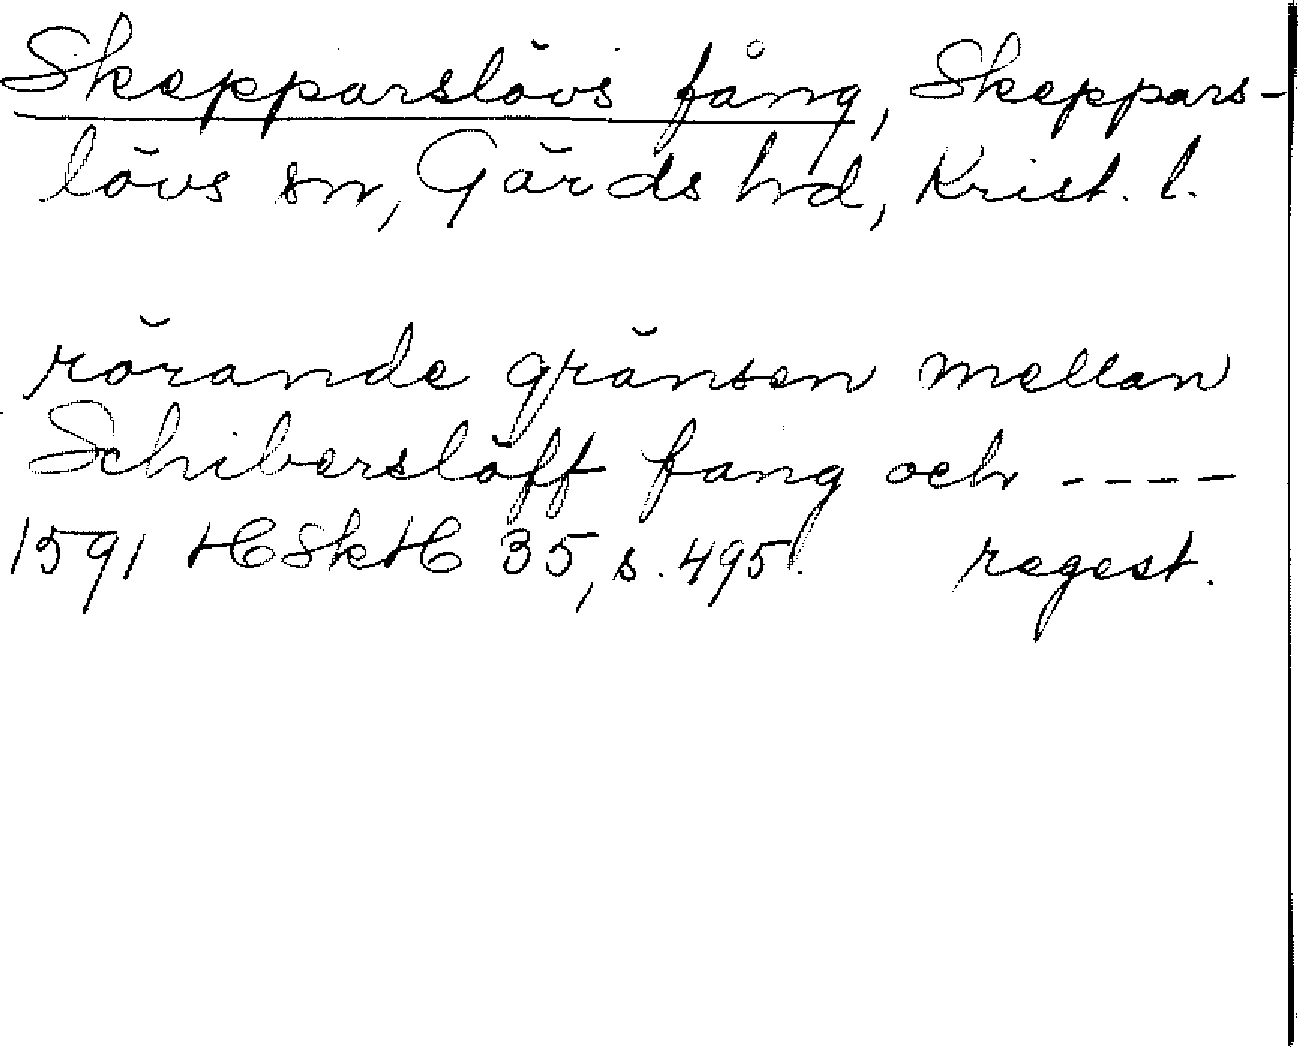 Skepparslövs fång, Skeppars-
lövs sn, Gärds hd, Krist. l.
rörande gränsen mellan
Schibersløff fang och ----
1591 HSkH 35, s. 495. regest.